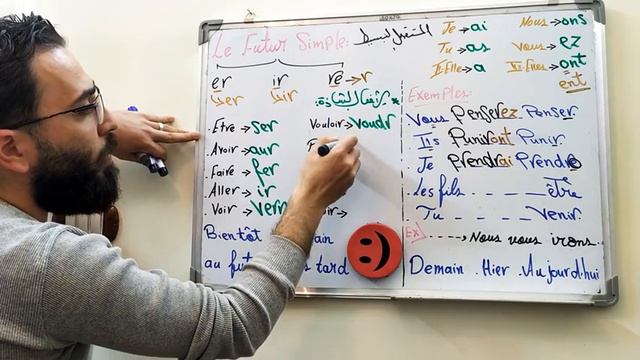 Le Futur Simple: المستقبل البسيط
er ir re → r
er ir
Etre → ser
Avoir → aur
Faire → fer
Aller → ir
Voir → verr
Vouloir → voudr
Bientôt
au fu tard
Je → ai
Tu → as
Il-Elle → a
Nous → ons
Vous → ez
Ils-Elles → ont
ent
Exemples:
Vous Penserez Penser
Ils Puniront Punir
Je Prendrai Prendre
Les fils _ _ _ _ _ Être
Tu _ _ _ _ _ Venir
Ex
Nous vous irons...
Demain. Hier. Aujourd'hui